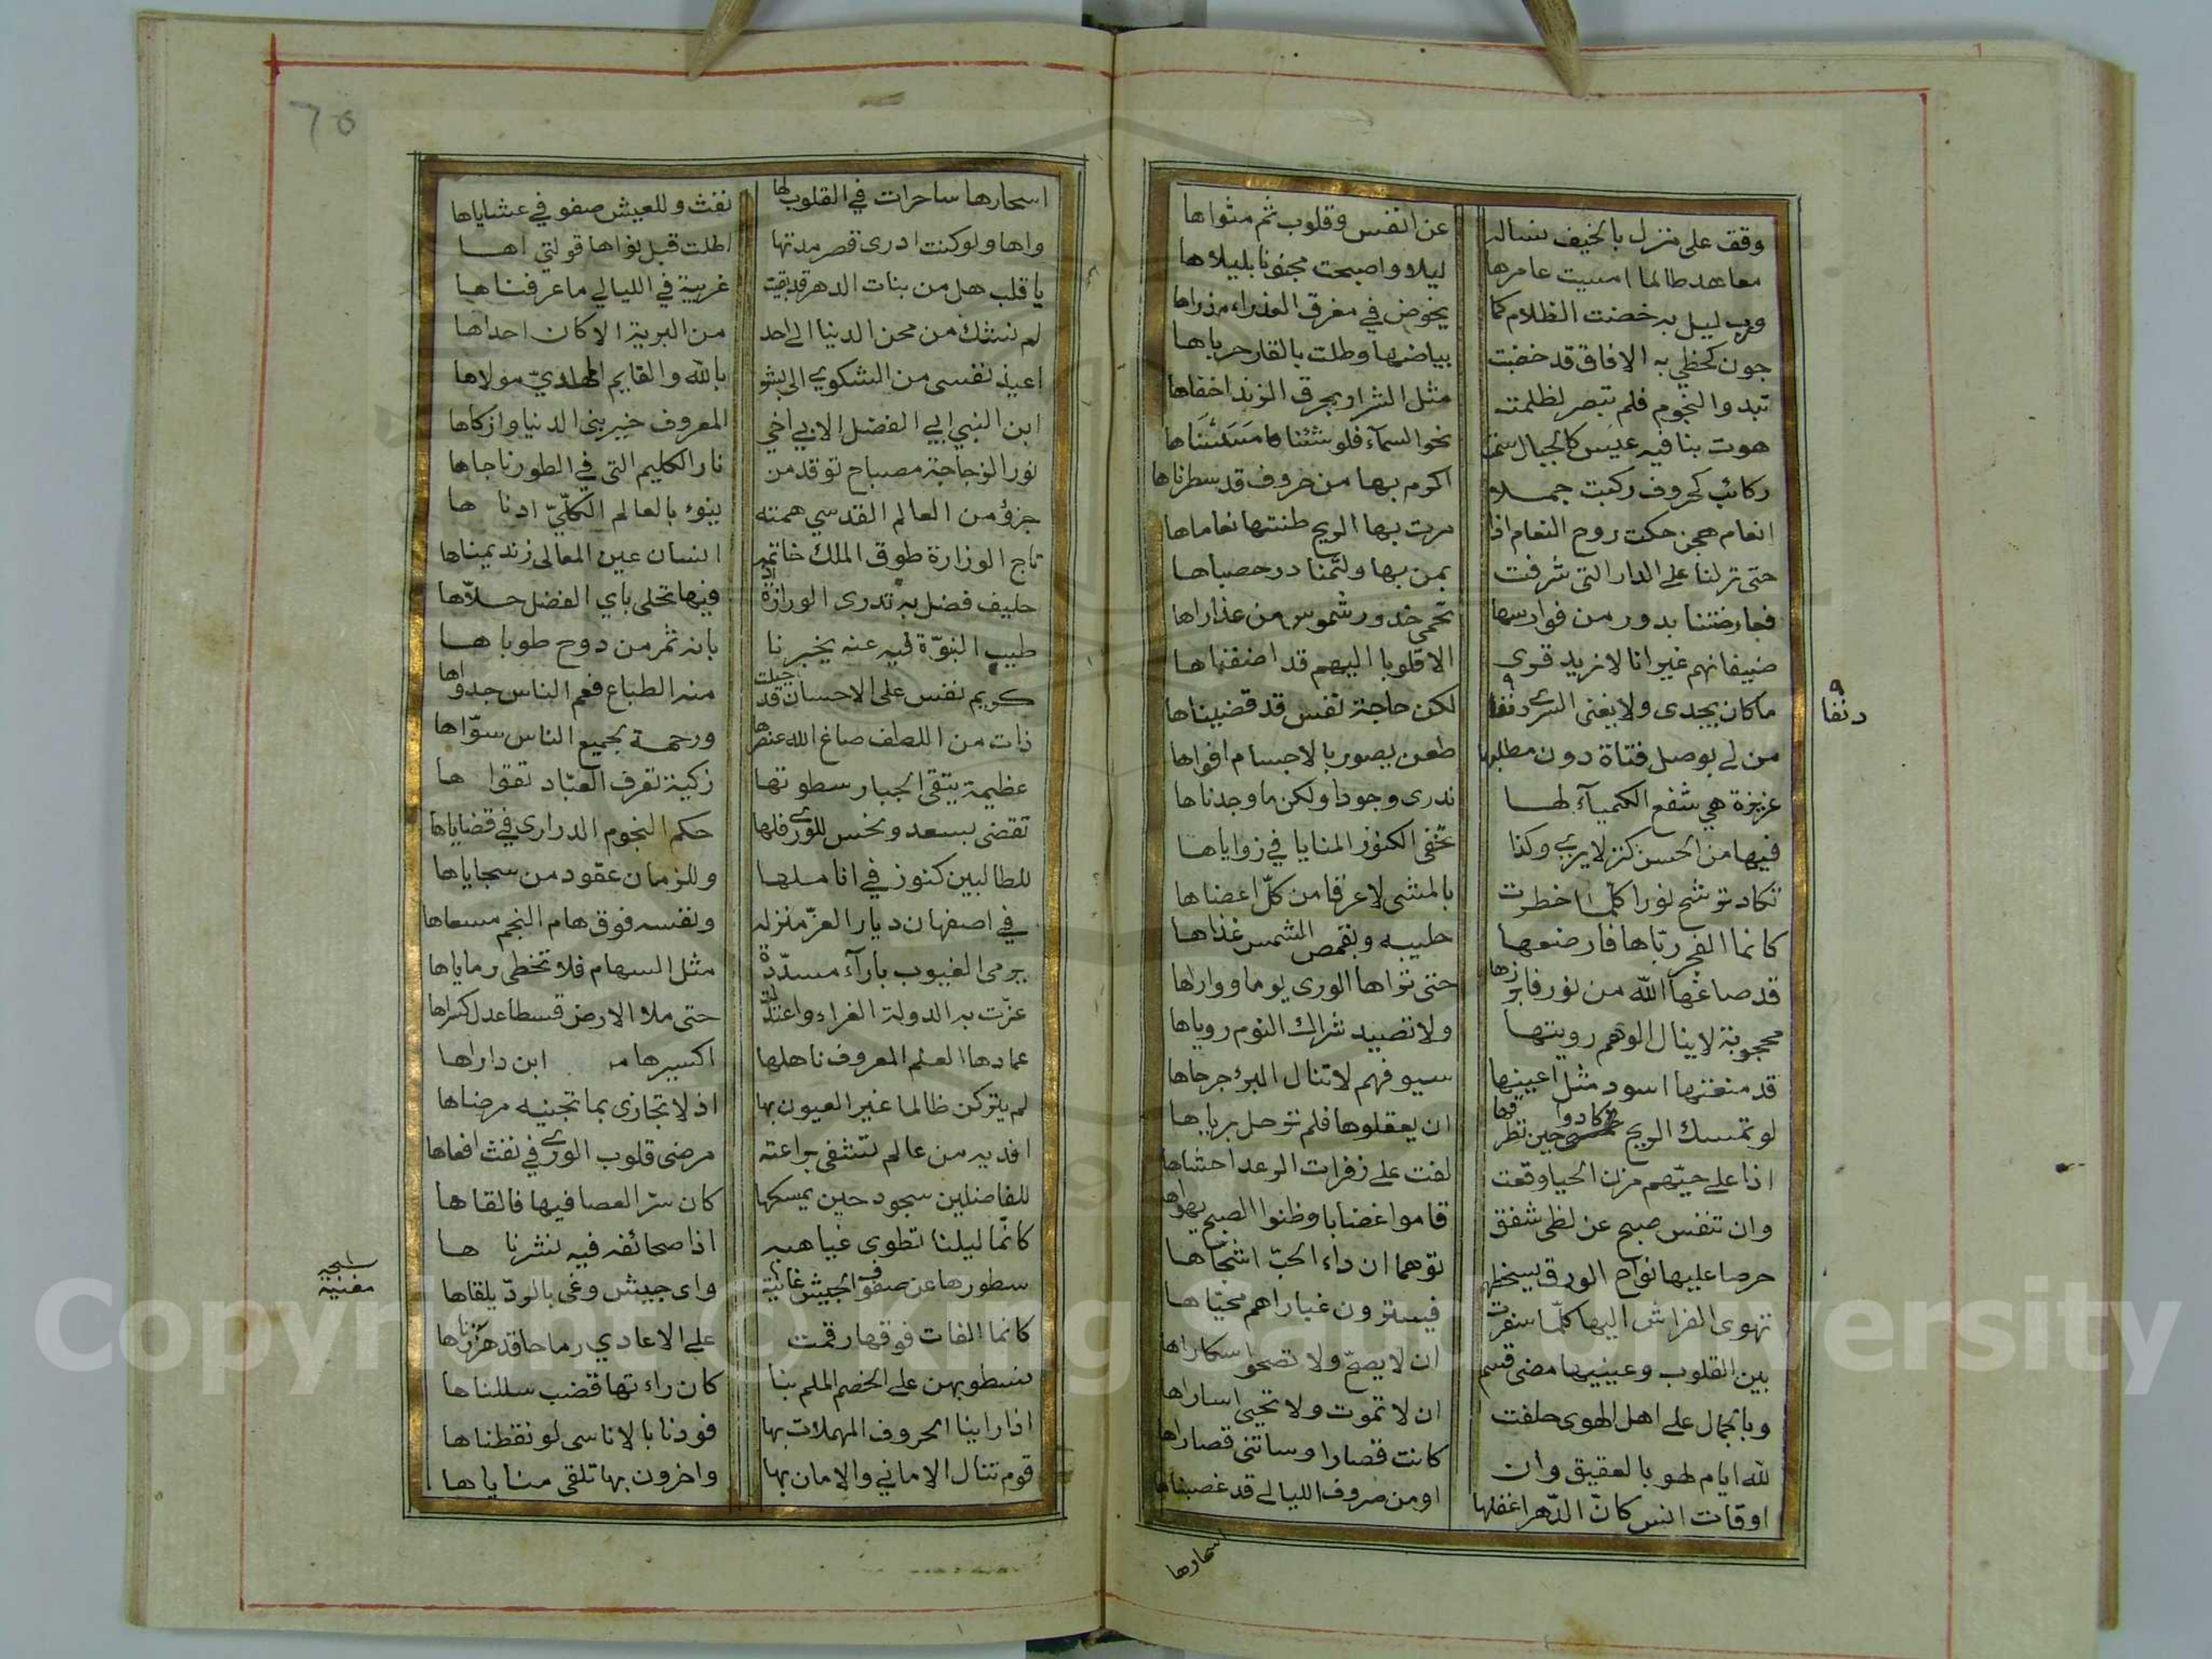 وقف على منزل بالخيف نسأله عن انفس وقلوب ثم مثواها
معاهد طالما امسيت عامرها ليلا واصبحت مجنونا بليلاها
ورب ليل به خضت الظلام كما يخوض في مفرق العذراء مدراها
جون كحظي به الافاق قد خضبت بياضها وطلت بالقار حرباها
تبدو النجوم فلم تبصر لظلمته مثل الشرار بجرق الزند اخفاها
هوت بنا فيه عيس كالجبال سمت نحو السماء فلو شئنا مسسناها
ركائب كحروف ركبت جملا اكوم بها من حروف قد سطرناها
انعام هجن حكت روح النعام اذا مرت بها الريح ظنتها نعاماها
حتى نزلنا على الدار التي شرفت بمن بها ولثمنا در حصباها
فعارضتنا بدور من فوارسها تحمي خدور شموس من عذاراها
ضيفانهم غير انا لا نريد قرى الا قلوبا اليهم قد اضفناها
ما كان يجدي ولا يغني السرى دنفا لكن حاجة نفس قد قضيناها
دنفا
من لي بوصل فتاة دون مطلبها طعن يصور بالاجسام افواها
عزيزة هي شفع الكيمياء لها ندري وجودا ولكن ما وجدناها
فيها من الحسن كنز لا يرى وكذا تخفي الكنوز المنايا في زواياها
تكاد ترشح نورا كلما خطرت بالمشي لا عرقا من كل اعضاها
كانما الفجر رباها فارضعها حليبه وبقمص الشمس غذاها
قد صاغها الله من نور فابرزها حتى تراها الورى يوما وواراها
محجوبة لا ينال الوهم رويتها ولا تصيد شراك النوم روياها
قد منعتها اسود مثل اعينها سيوفهم لا تنال البرء جرحاها
لو تمسك الريح كادوا حين تطرقها ان يعقلوها فلم ترحل برياها
اذا على حيهم مزن الحيا وقعت لفت على زفرات الرعد احشاها
وان تنفس صبح عن لظى شفق قاموا غضابا وظنوا الصبح يهواها
حرصا عليها نواح الورق يسخطهم توهما ان داء الحب اشجاها
تهوى الفراش اليها كلما سفرت فيسترون غيارا هم محياها
بين القلوب وعينيها مضى قسم ان لا يصح ولا تصحو اسكاراها
وبالجمال على اهل الهوى حلفت ان لا تموت ولا تحيى اساراها
لله ايام لهو بالعقيق وان كانت قصارا وساتني قصاراها
اوقات انس كان الدهر اغفلها او من صروف الليالي قد غصبناها
اسحارها
اسحارها ساحرات في القلوب لها نفث وللعيش صفو في عشاياها
واها ولو كنت ادرى قصر مدتها اطلت قبل نواها قولتي اها
يا قلب هل من بنات الدهر قد بقيت غريبة في الليالي ما عرفناها
لم نشك من محن الدنيا الى احد من البرية الا كان احداها
اعيذ نفسي من الشكوى الى بشر بالله والقايم المهدي مولاها
ابن النبي ابي الفضل الابي اخي المعروف خير بني الدنيا وازكاها
نور الزجاجة مصباح توقد من نار الكليم التي في الطور ناجاها
جزؤ من العالم القدسي همته ينوء بالعالم الكلي ادناها
تاج الوزارة طوق الملك خاتمه انسان عين المعالي زند يمناها
حليف فضل به تدرى الوزارة اذ فيها تحلى باي الفضل حلاها
طيب النبوة فيه عنه يخبرنا بانه ثمر من دوح طوباها
كريم نفس على الاحسان قد جبلت منه الطباع فعم الناس جدواها
ذات من اللطف صاغ الله عنصرها ورحمة بجميع الناس سواها
عظيمة يتقى الجبار سطوتها زكية تعرف العباد تقواها
تقضى بسعد ونحس للورى فلها حكم النجوم الدراري في قضاياها
للطالبين كنوز في انا ملها وللزمان عقود من سجاياها
في اصفهان ديار العز منزله ونفسه فوق هام النجم مسعاها
يرمى الغيوب باراء مسددة مثل السهام فلا تخطى رماياها
عزت به الدولة الغراء واعتدلت حتى ملا الارض قسطا عدل كسراها
عمادها العلم المعروف ناهلها اكسيرها ابن داراها
لم يتركن ظالما غير العيون بها اذ لا تجازى بما تجنيه مرضاها
افديه من عالم تشفي براعته مرضى قلوب الورى في نفث افعاها
للفاضلين سجود حين يمسكها كان سر العصا فيها فالقاها
كانما ليلنا تطوى غياهبه اذا صحائفه فيه نشرناها
سطورها عن صفوف الجيش غانية واى جيش وغى بالود يلقاها
مغنية
كانما الفات فوقها رقمت على الاعادي رماحا قد هززناها
نسطو بهن على الخصم الملم بنا كان راء تها قضب سللناها
اذا راينا الحروف المهملات بها فودنا بالاناسى لو نقطناها
قوم تنال الاماني والامان بها واخرون بها تلقى مناياها
Copyright © King Saud University